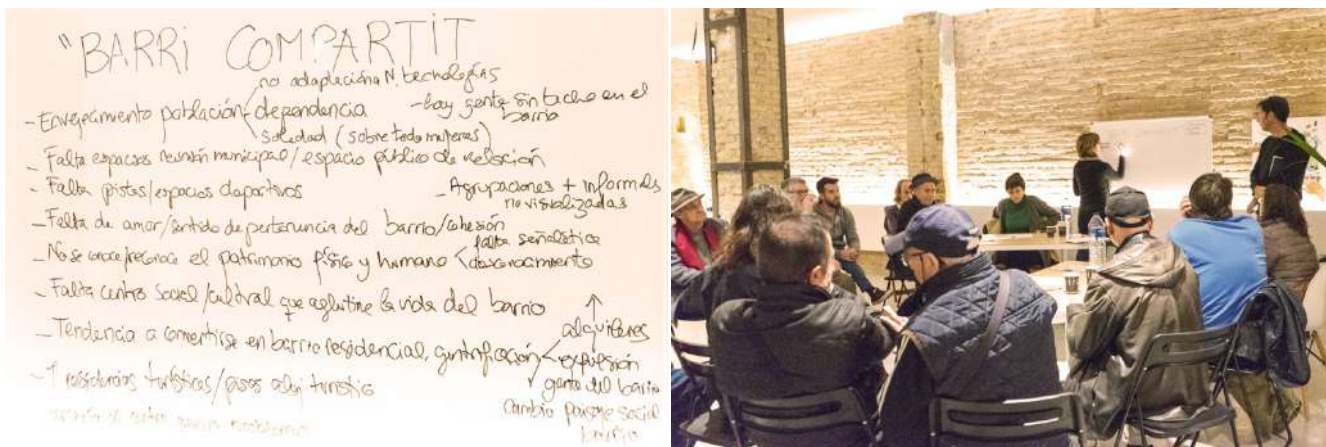 "BARRi COMPARTiT
no adaptación a N. tecnologías
- Envejecimiento población - dependencia
- hay gente sin techo en el barrio
soledad (sobre todo mujeres)
- Falta espacios reunión municipal / espacio público de relación
- Falta pistas/espacios deportivos
- Agrupaciones + informales no visualizadas
- Falta de amor/sentido de pertenencia del barrio/cohesión
- No se conoce/reconoce el patrimonio físico y humano
falta señalística
desconocimiento
- Falta centro social/cultural que aglutine la vida del barrio
- Tendencia a convertirse en barrio residencial, gentrificación
↑ alquileres
expulsión gente del barrio
Cambio paisaje social barrio
residencias turísticas/pisos